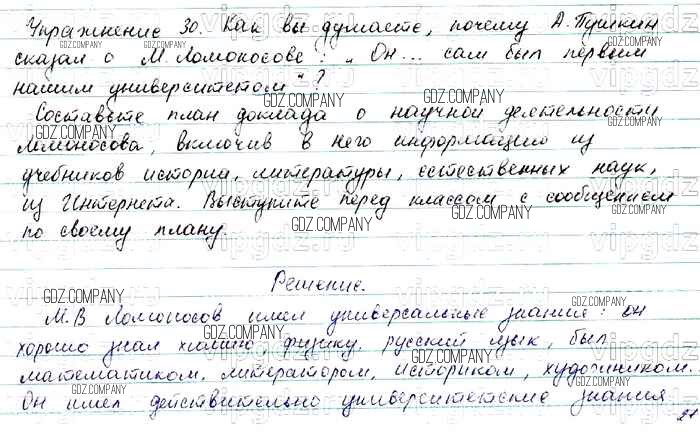 Упражнение 30. Как вы думаете, почему А. Пушкин
сказал о М. Ломоносове: „Он... сам был первым
нашим университетом"?
Составьте план доклада о научной деятельности
Ломоносова, включив в него информацию из
учебников истории, литературы, естественных наук,
из Интернета. Выступите перед классом с сообщением
по своему плану.
Решение.
М.В Ломоносов имел универсальные знания: он
хорошо знал химию физику, русский язык, был
математиком, литератором, историком, художником.
Он имел действительно университетские знания
21